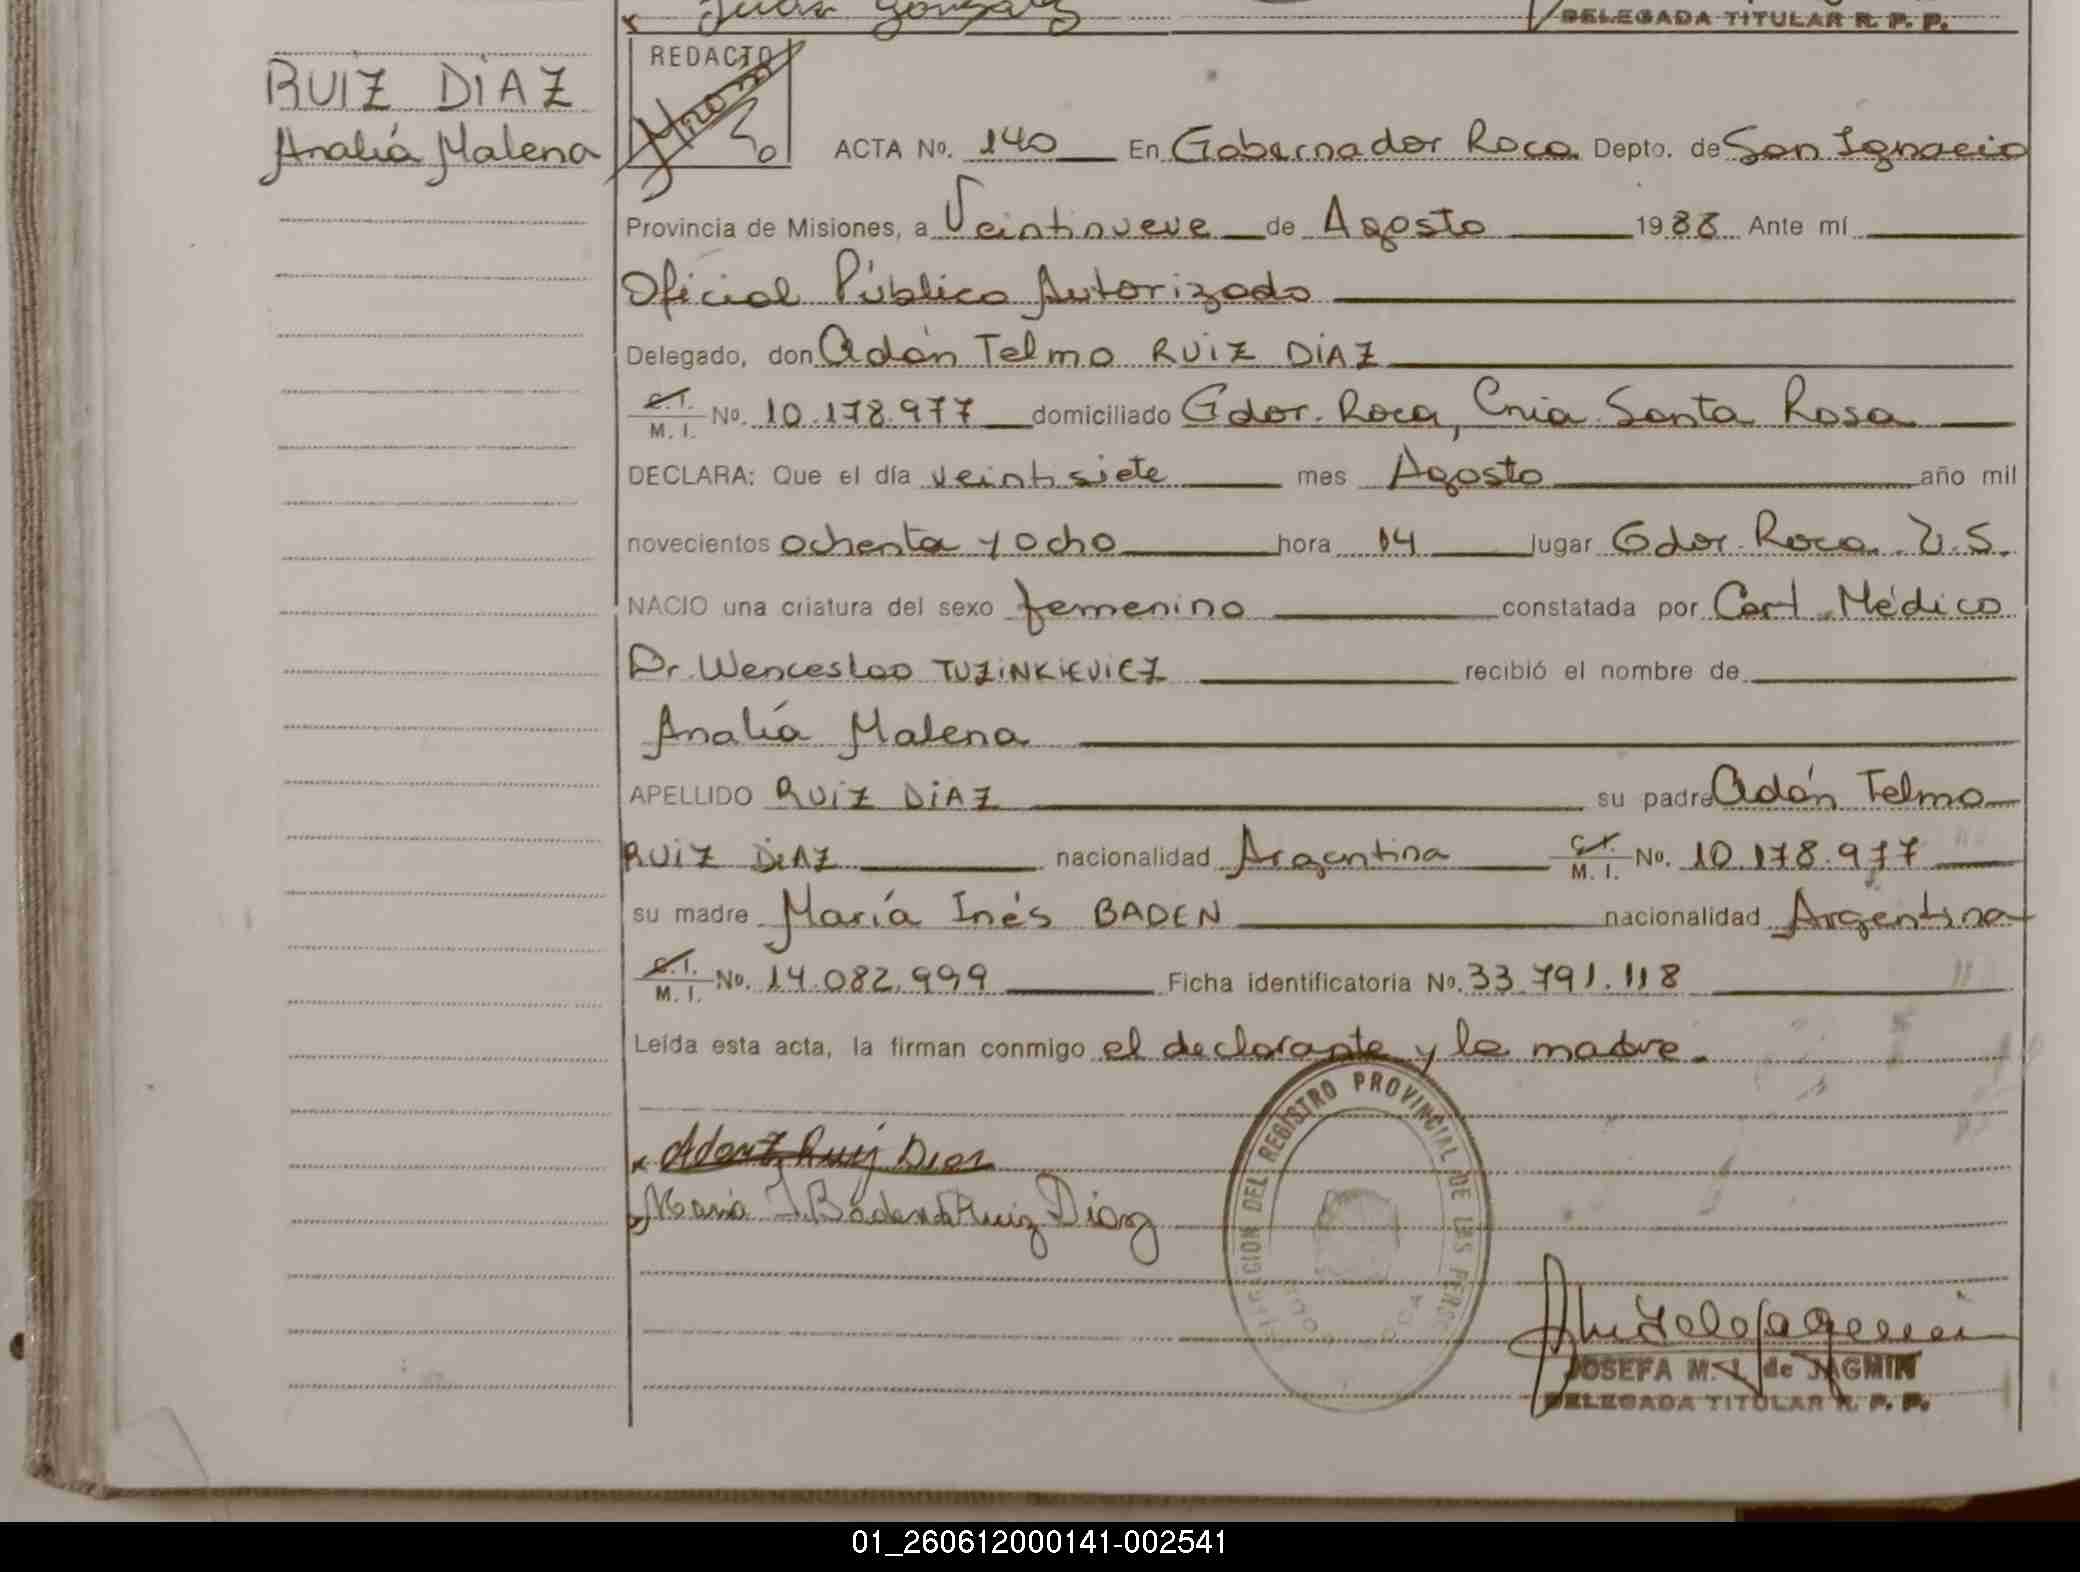 Juan Gonzalez
DELEGADA TITULAR R. P. P.
RUIZ DÍAZ
Analía Malena
REDACTO
ACTA No. 140 En Gobernador Roca Depto. de San Ignacio
Provincia de Misiones, a Veintinueve de Agosto 1988 Ante mí
Oficial Público Autorizado
Delegado, don Adán Telmo RUIZ DÍAZ
C.I.
M. I. No. 10.178.977 domiciliado Gdor. Roca, Cnia Santa Rosa
DECLARA: Que el día veintisiete mes Agosto año mil
novecientos ochenta y ocho hora 14 lugar Gdor. Roca. U.S.
NACIO una criatura del sexo femenino constatada por Cert. Médico
Dr. Wenceslao TUZINKIEVICZ recibió el nombre de
Analía Malena
APELLIDO RUIZ DÍAZ su padre Adán Telmo
RUIZ DÍAZ nacionalidad Argentina C.I. M. I. No. 10.178.977
su madre María Inés BADEN nacionalidad Argentina
C.I.
M. I. No. 14.082.999 Ficha identificatoria No. 33.791.118
Leída esta acta, la firman conmigo el declarante y la madre.
x Adan T. Ruiz Diaz
x María I. Baden de Ruiz Diaz
DELEGACION DEL REGISTRO PROVINCIAL DE LAS PERS
JOSEFA M. L. de JAGMIN
DELEGADA TITULAR R. P. P.
01_260612000141-002541